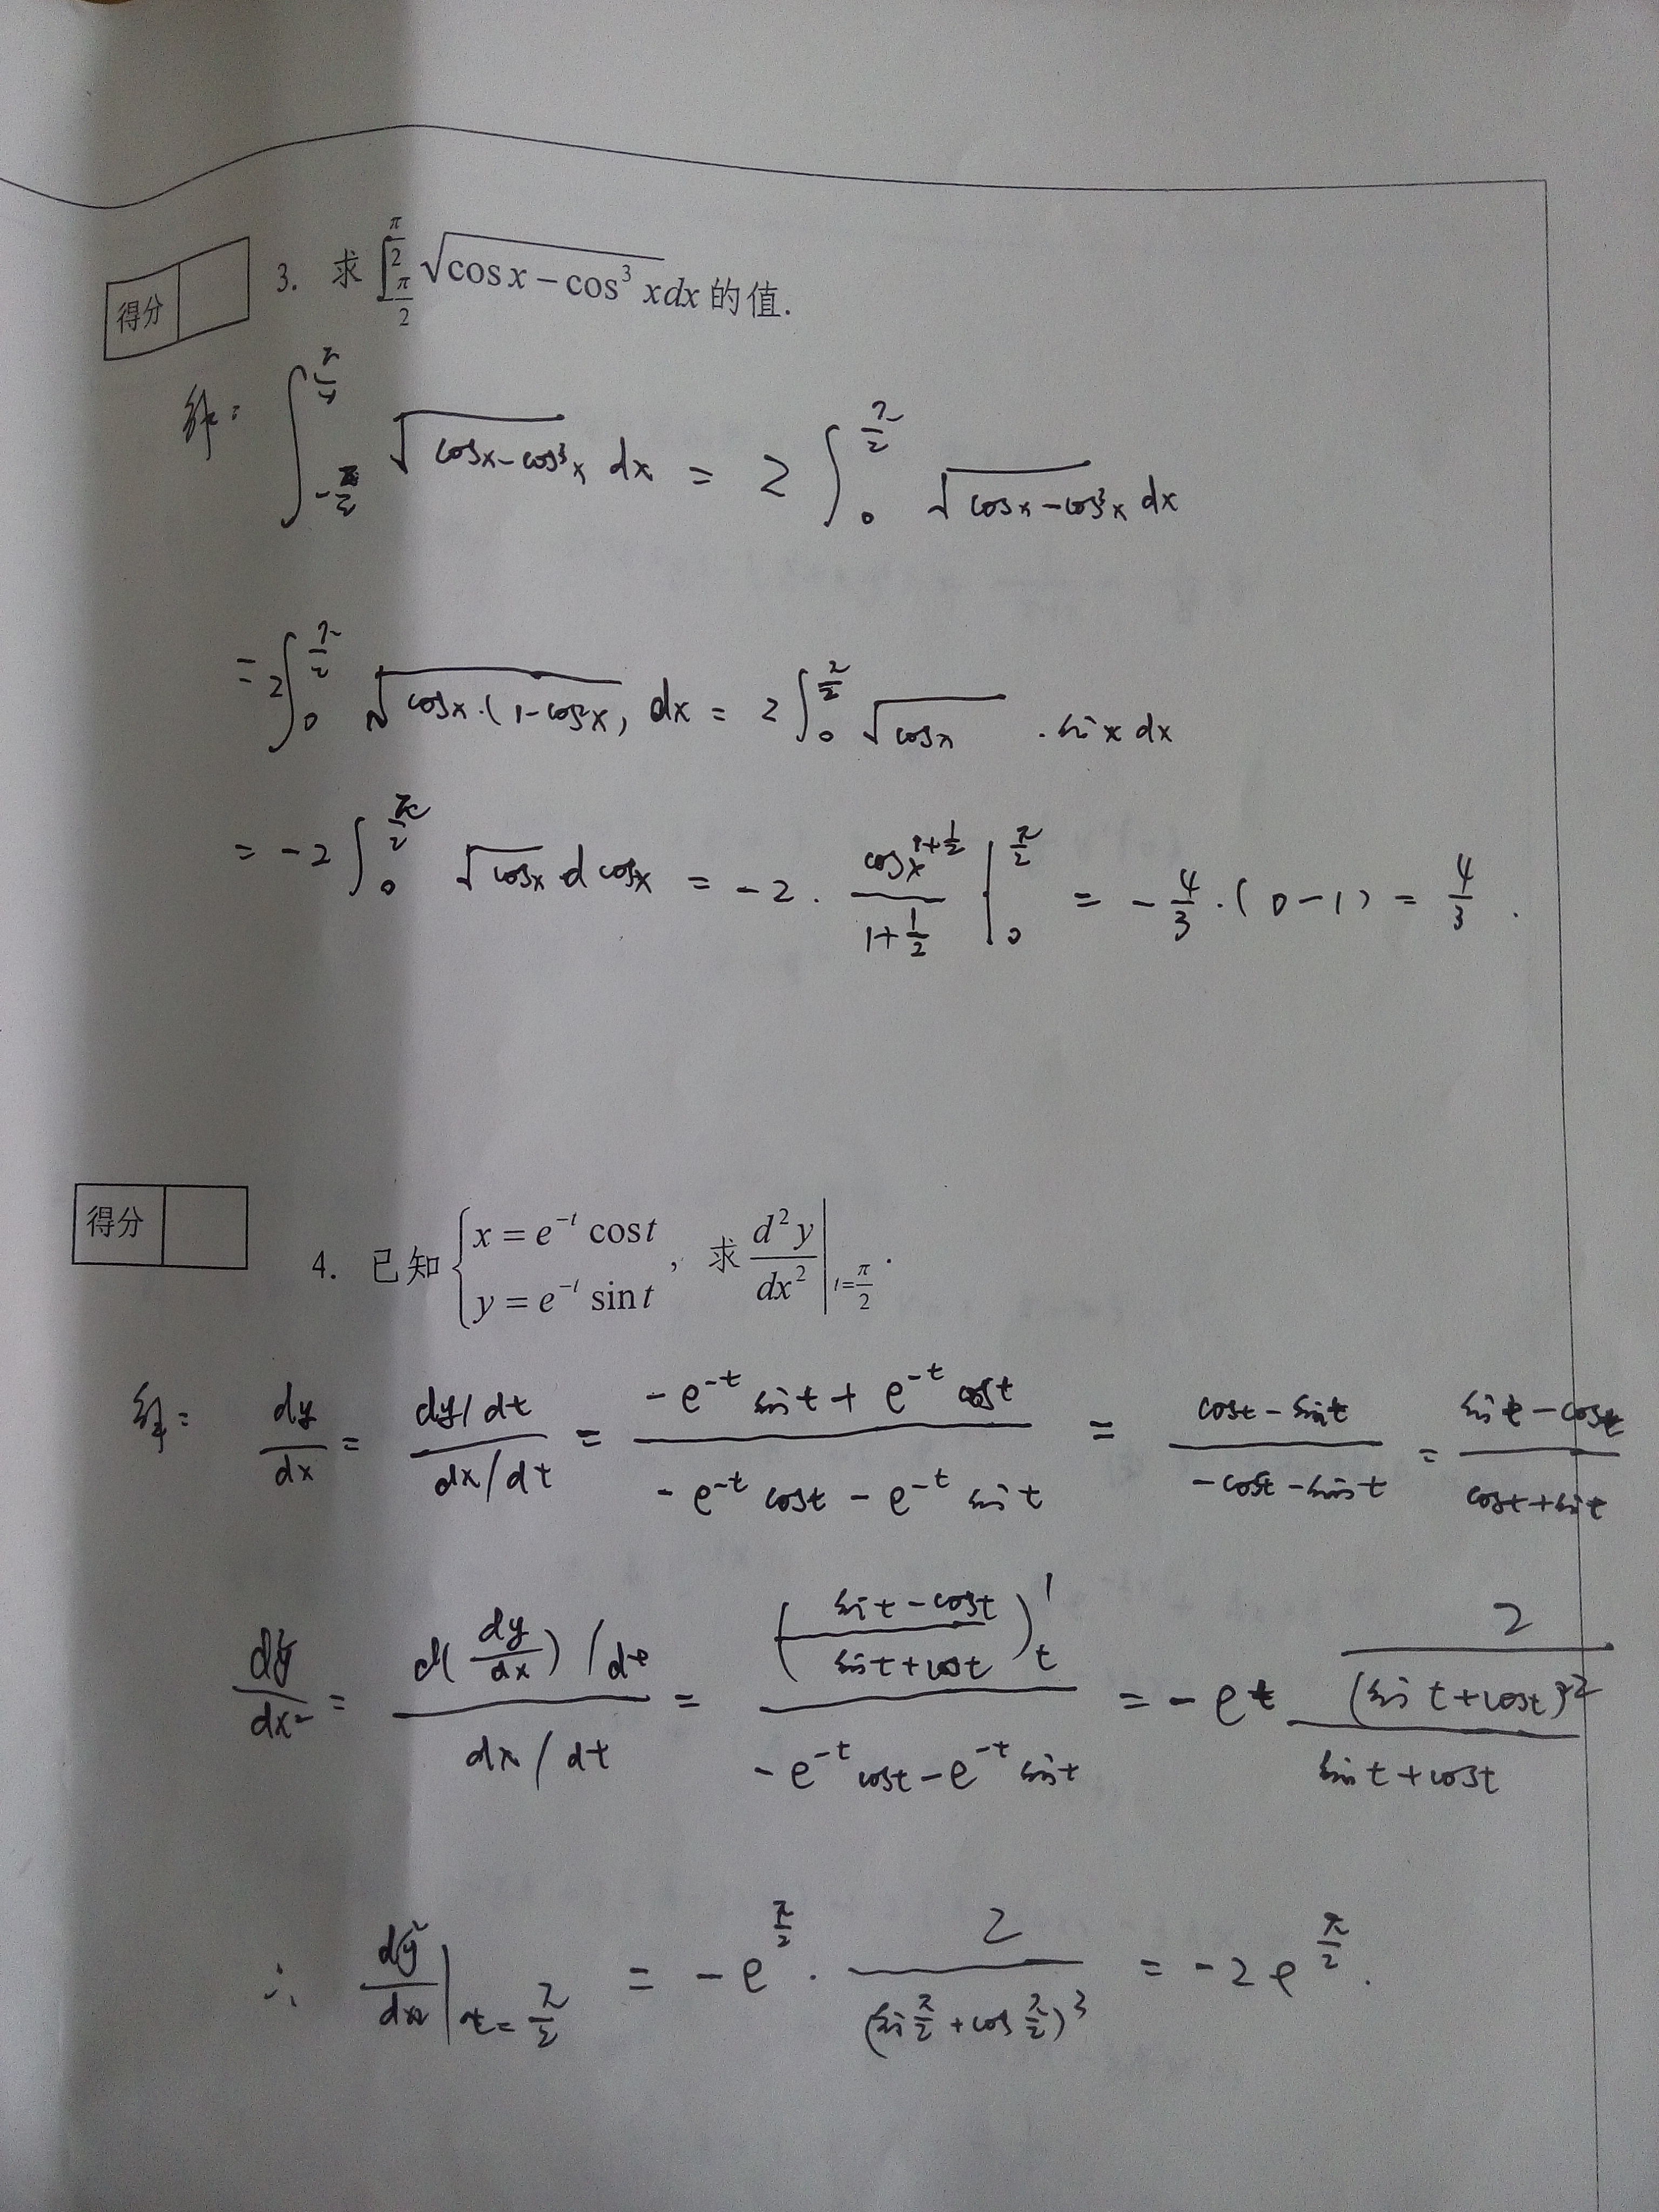 得分
3. 求 ∫_{-π/2}^{π/2} √(cos x − cos³ x) dx 的值.
解: ∫_{-π/2}^{π/2} √(cosx − cos³x) dx = 2 ∫_0^{π/2} √(cosx − cos³x) dx
= 2 ∫_0^{π/2} √(cosx·(1−cos²x)) dx = 2 ∫_0^{π/2} √cosx · sin x dx
= −2 ∫_0^{π/2} √cosx d cosx = −2 · cosx^{1+1/2} / (1+1/2) |_0^{π/2} = −4/3 · (0−1) = 4/3 .
得分
4. 已知 { x = e^{-t} cos t, y = e^{-t} sin t , 求 d²y/dx² |_{t=π/2} .
解: dy/dx = (dy/dt)/(dx/dt) = (−e^{-t} sin t + e^{-t} cost)/(−e^{-t} cost − e^{-t} sin t) = (cost − sint)/(−cost − sint) = (sint − cost)/(cost + sint)
d²y/dx² = (d(dy/dx)/dt)/(dx/dt) = ((sint − cost)/(sint + cost))'_t / (−e^{-t} cost − e^{-t} sint) = −e^t (2/(sin t + cost)²)/(sin t + cost)
∴ d²y/dx² |_{t=π/2} = −e^{π/2} · 2/(sin π/2 + cos π/2)³ = −2e^{π/2} .